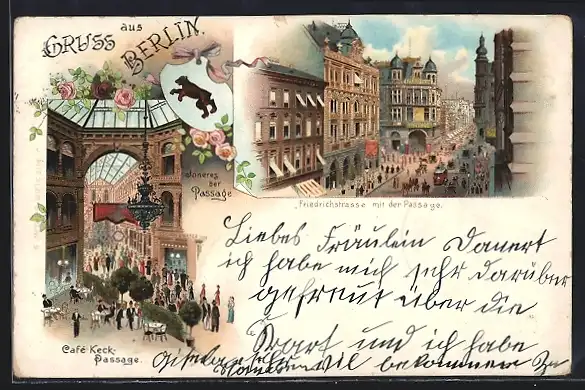 GRUSS aus BERLIN.
Jnneres der Passage
Friedrichstrasse mit der Passage.
Café Keck-Passage.
Liebes Fräulein Danert
ich habe mich sehr darüber
gefreut über die
und ich habe
bekommen